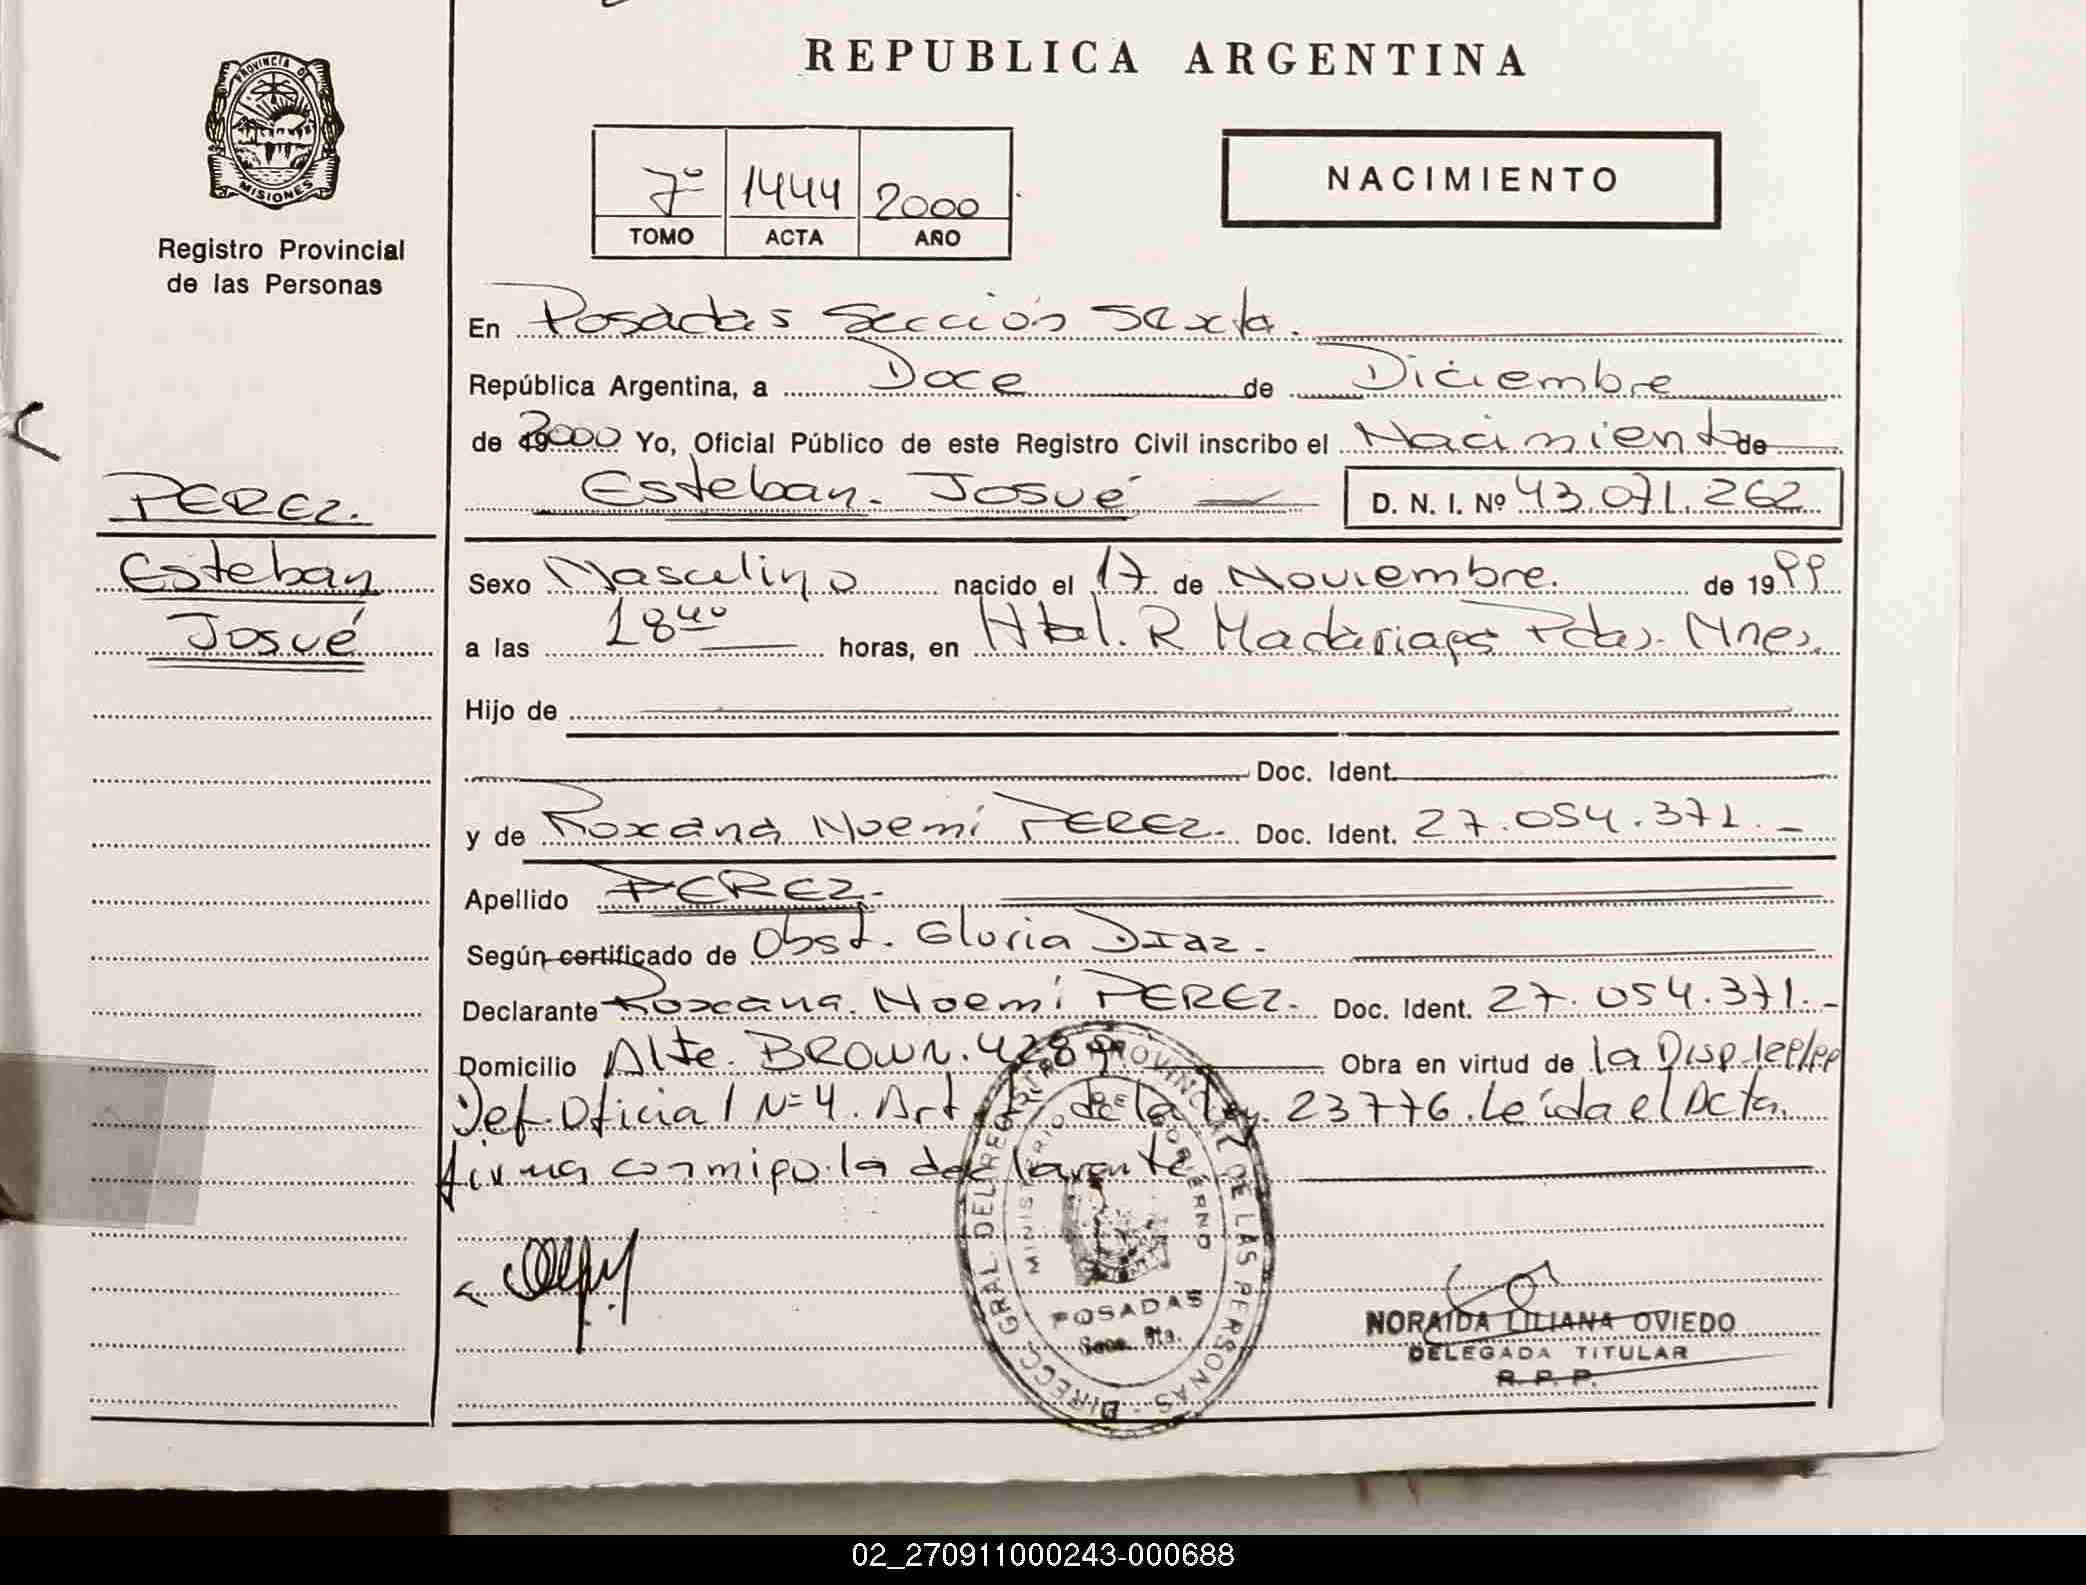 REPUBLICA ARGENTINA
PROVINCIA DE
MISIONES
Registro Provincial
de las Personas
7º 1444 2000
TOMO ACTA AÑO
NACIMIENTO
En Posadas Sección Sexta.
República Argentina, a Doce de Diciembre
de 2000 Yo, Oficial Público de este Registro Civil inscribo el Nacimiento de
Esteban Josué D. N. I. Nº 43.071.262
PEREZ.
Esteban
Josué
Sexo Masculino nacido el 17 de Noviembre. de 1999
a las 18 40 horas, en Htal. R Madariaga Pdas. Mnes.
Hijo de
Doc. Ident.
y de Roxana Noemí PEREZ. Doc. Ident. 27.054.371.-
Apellido PEREZ.-
Según certificado de Obst. Gloria Diaz.-
Declarante Roxana Noemí PEREZ.- Doc. Ident. 27.054.371.-
Domicilio Alte. BROWN. 4289 Obra en virtud de la Disp.
Def. Oficial Nº 4. Art de la Ley. 23776. Leída el Acta
firma conmigo la declarante
DIRECC. GRAL. DEL REGISTRO PROVINCIAL DE LAS PERSONAS
MINISTERIO DE GOBIERNO
POSADAS
Secc. 6ta.
NORAIDA LILIANA OVIEDO
DELEGADA TITULAR
R. P. P.
02_270911000243-000688